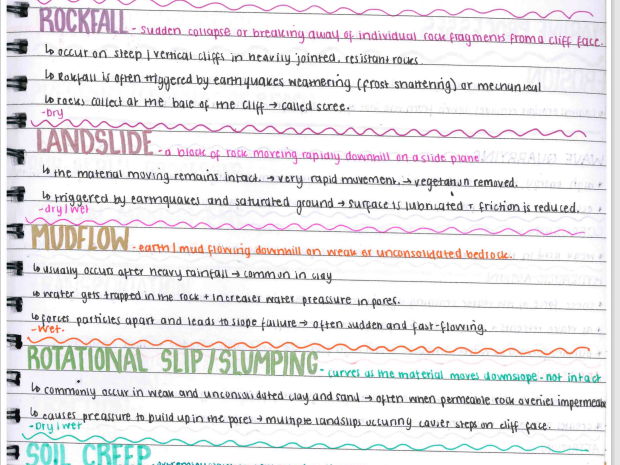 ROCKFALL - sudden collapse or breaking away of individual rock fragments from a cliff face.
↳ occur on steep / vertical cliffs in heavily jointed, resistant rocks
↳ Rockfall is often triggered by earthquakes weathering (frost shattering) or mechanical
↳ rocks collect at the base of the cliff → called scree.
-Dry
LANDSLIDE - a block of rock moveing rapidly downhill on a slide plane.
↳ the material moving remains intact. → very rapid movement. → vegetation removed.
↳ triggered by earthquakes and saturated ground → surface is lubricated + friction is reduced.
-dry / wet
MUDFLOW - earth / mud flowing downhill on weak or unconsolidated bedrock.
↳ usually occurs after heavy rainfall → common in clay
↳ water gets trapped in the rock + increases water preassure in pores.
↳ forces particles apart and leads to slope failure → often sudden and fast-flowing.
-wet.
ROTATIONAL SLIP / SLUMPING - curves as the material moves downslope - not intact
↳ commonly occur in weak and unconsolidated clay and sand → often when permeable rock overlies
↳ causes preassure to build up in the pores → multiple landslips steps on cliff face.
-Dry / wet
SOIL CREEP